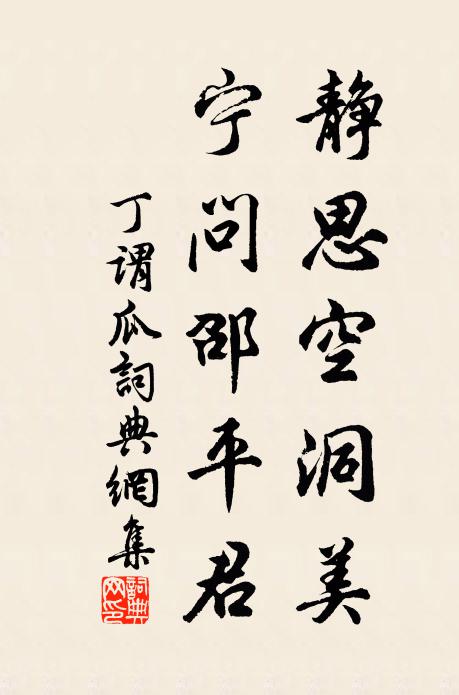 静思空洞美
宁问邵平君
丁谓瓜詞典網集
詞典网印